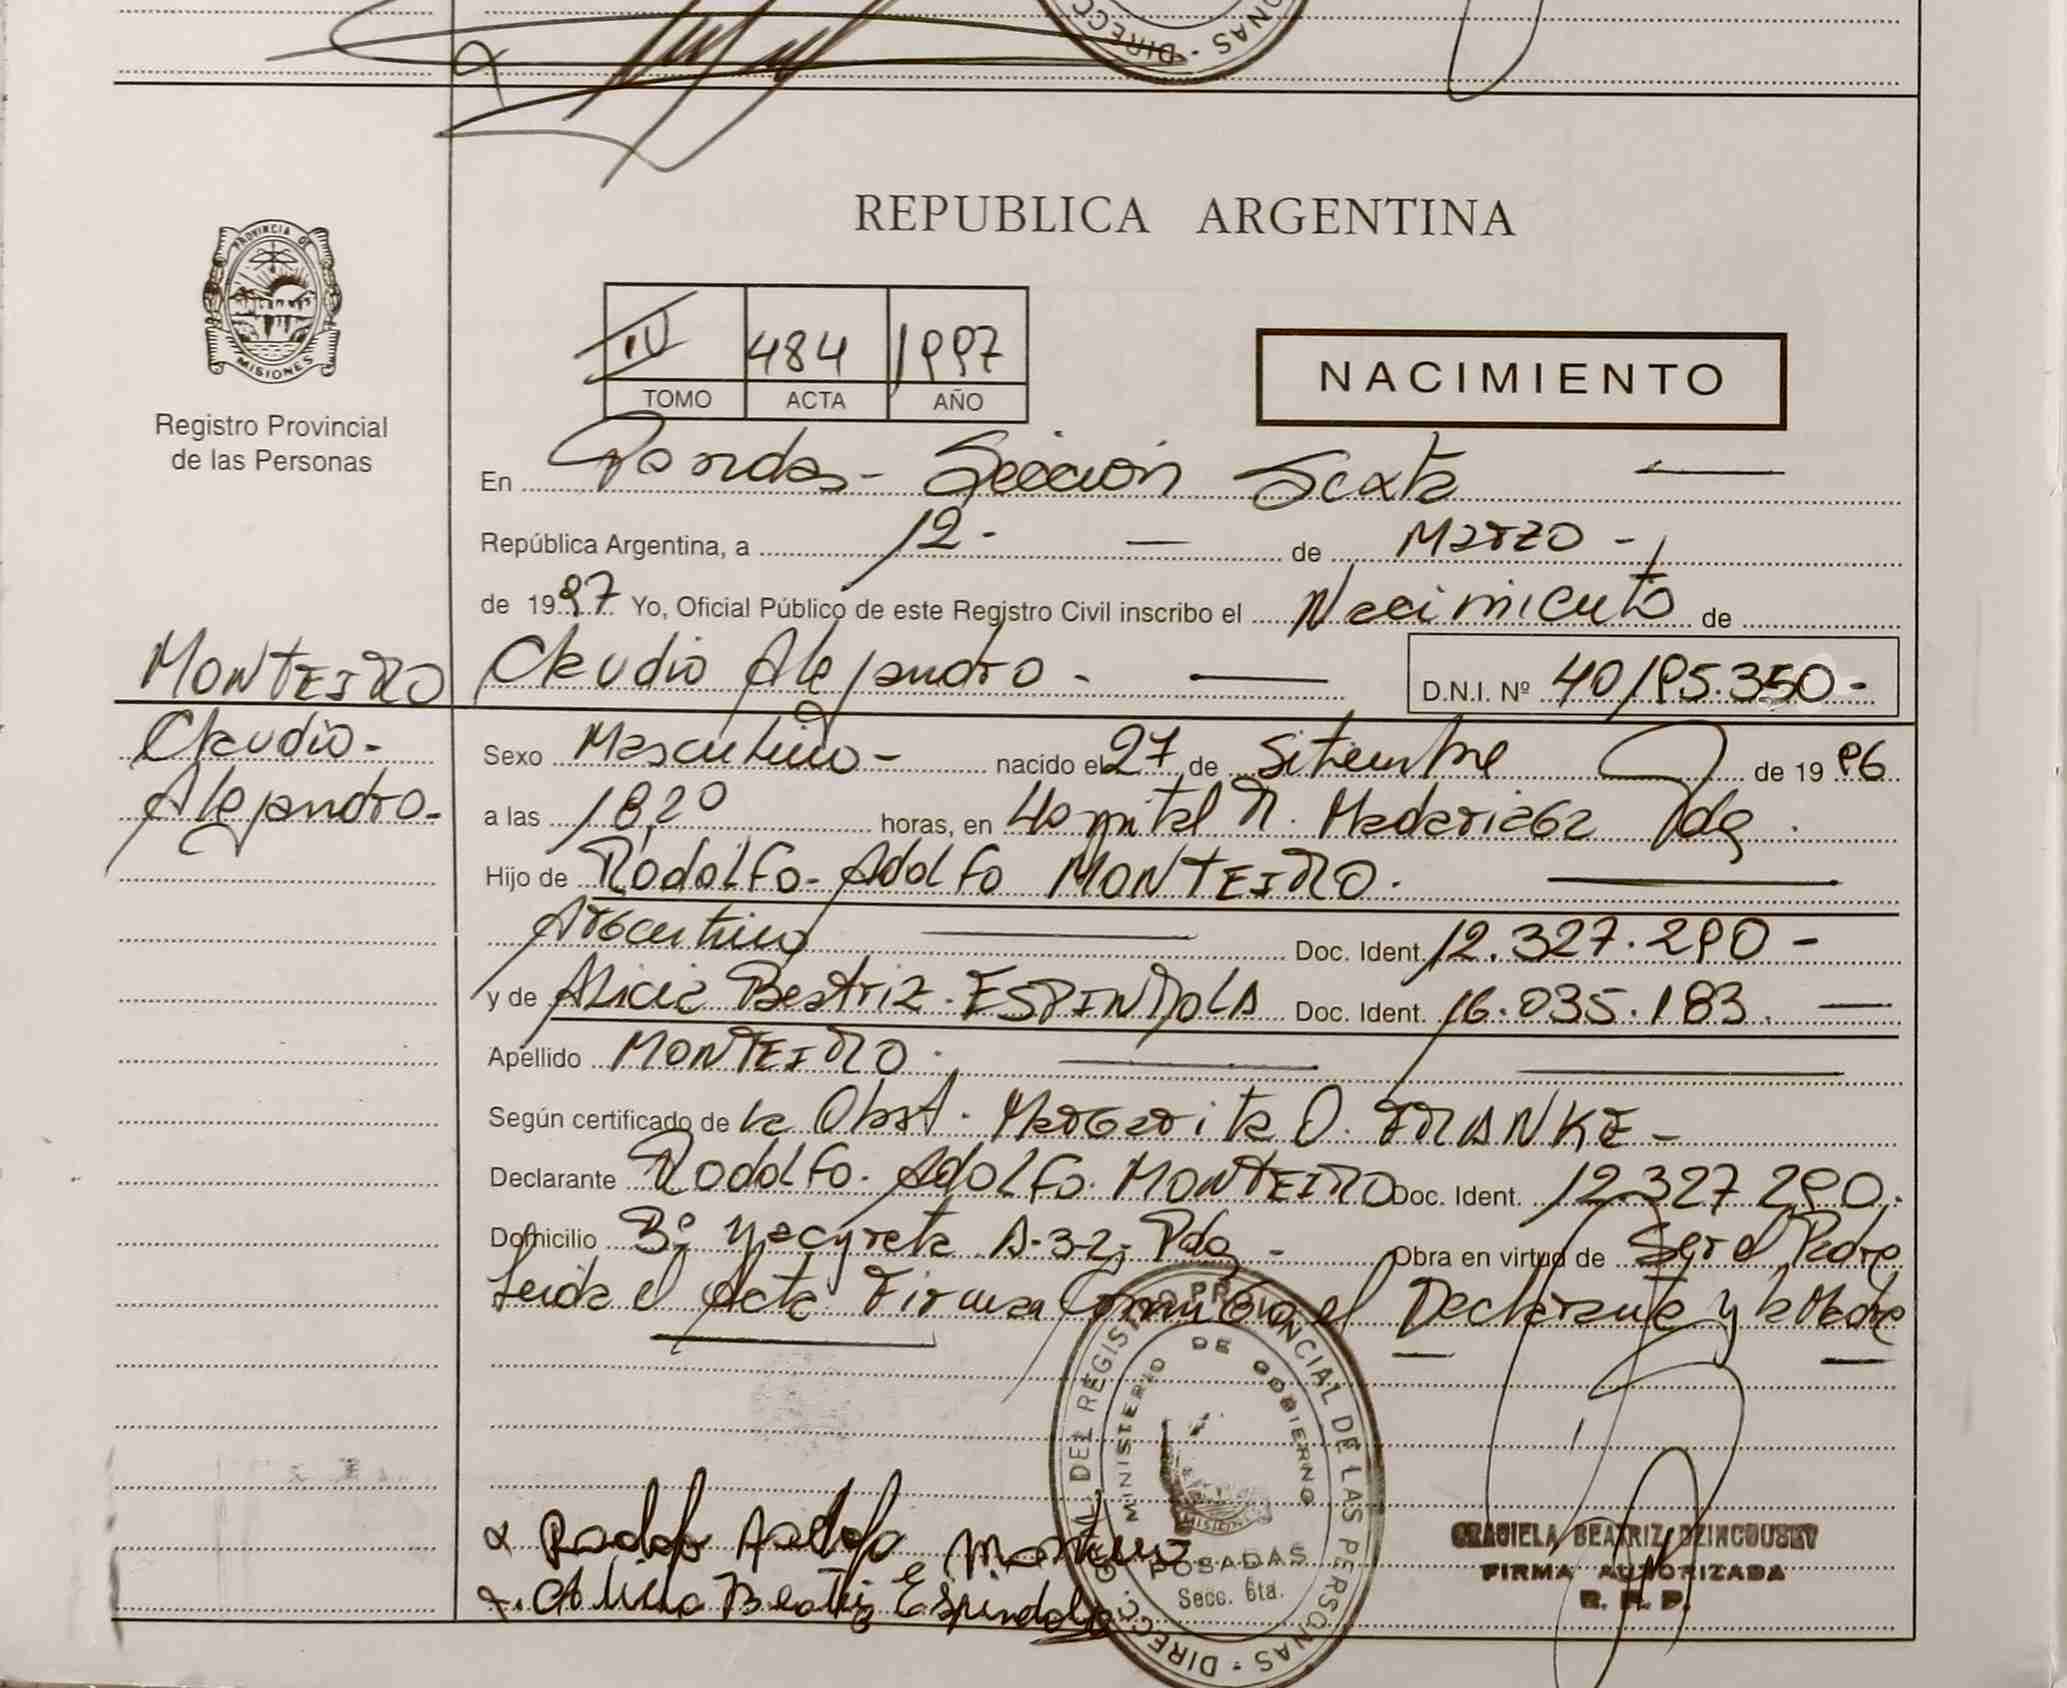 REPUBLICA ARGENTINA
PROVINCIA DE
MISIONES
Registro Provincial
de las Personas
IV 484 1997
TOMO ACTA AÑO
NACIMIENTO
En Posadas - Sección Sexta
República Argentina, a 12 - de Marzo -
de 1997 Yo, Oficial Público de este Registro Civil inscribo el Nacimiento de
MONTEIRO Claudio Alejandro - D.N.I. Nº 40.195.350 -
Claudio -
Alejandro -
Sexo Masculino - nacido el 27 de Setiembre de 1996
a las 18,20 horas, en Hospital R. Madariaga Pdas.
Hijo de Rodolfo - Adolfo MONTEIRO.
Argentino Doc. Ident. 12.327.290 -
y de Alicia Beatriz. ESPINDOLA Doc. Ident. 16.035.183.
Apellido MONTEIRO.
Según certificado de la Obst. Margarita O. FRANKE -
Declarante Rodolfo. Adolfo. MONTEIRO Doc. Ident. 12.327.290.
Domicilio Bº Yacyreta A-32- Pdas - Obra en virtud de Ser el Padre
Leida el Acta Firman Conmigo el Declarante y la Madre
DIRECC. G. DEL REGISTRO PROVINCIAL DE LAS PERSONAS
MINISTERIO DE GOBIERNO
MISIONES
POSADAS
Secc. 6ta.
x Rodolfo Adolfo Monteiro
x. Alicia Beatriz Espindola
GRACIELA BEATRIZ
FIRMA AUTORIZADA
R. P. P.